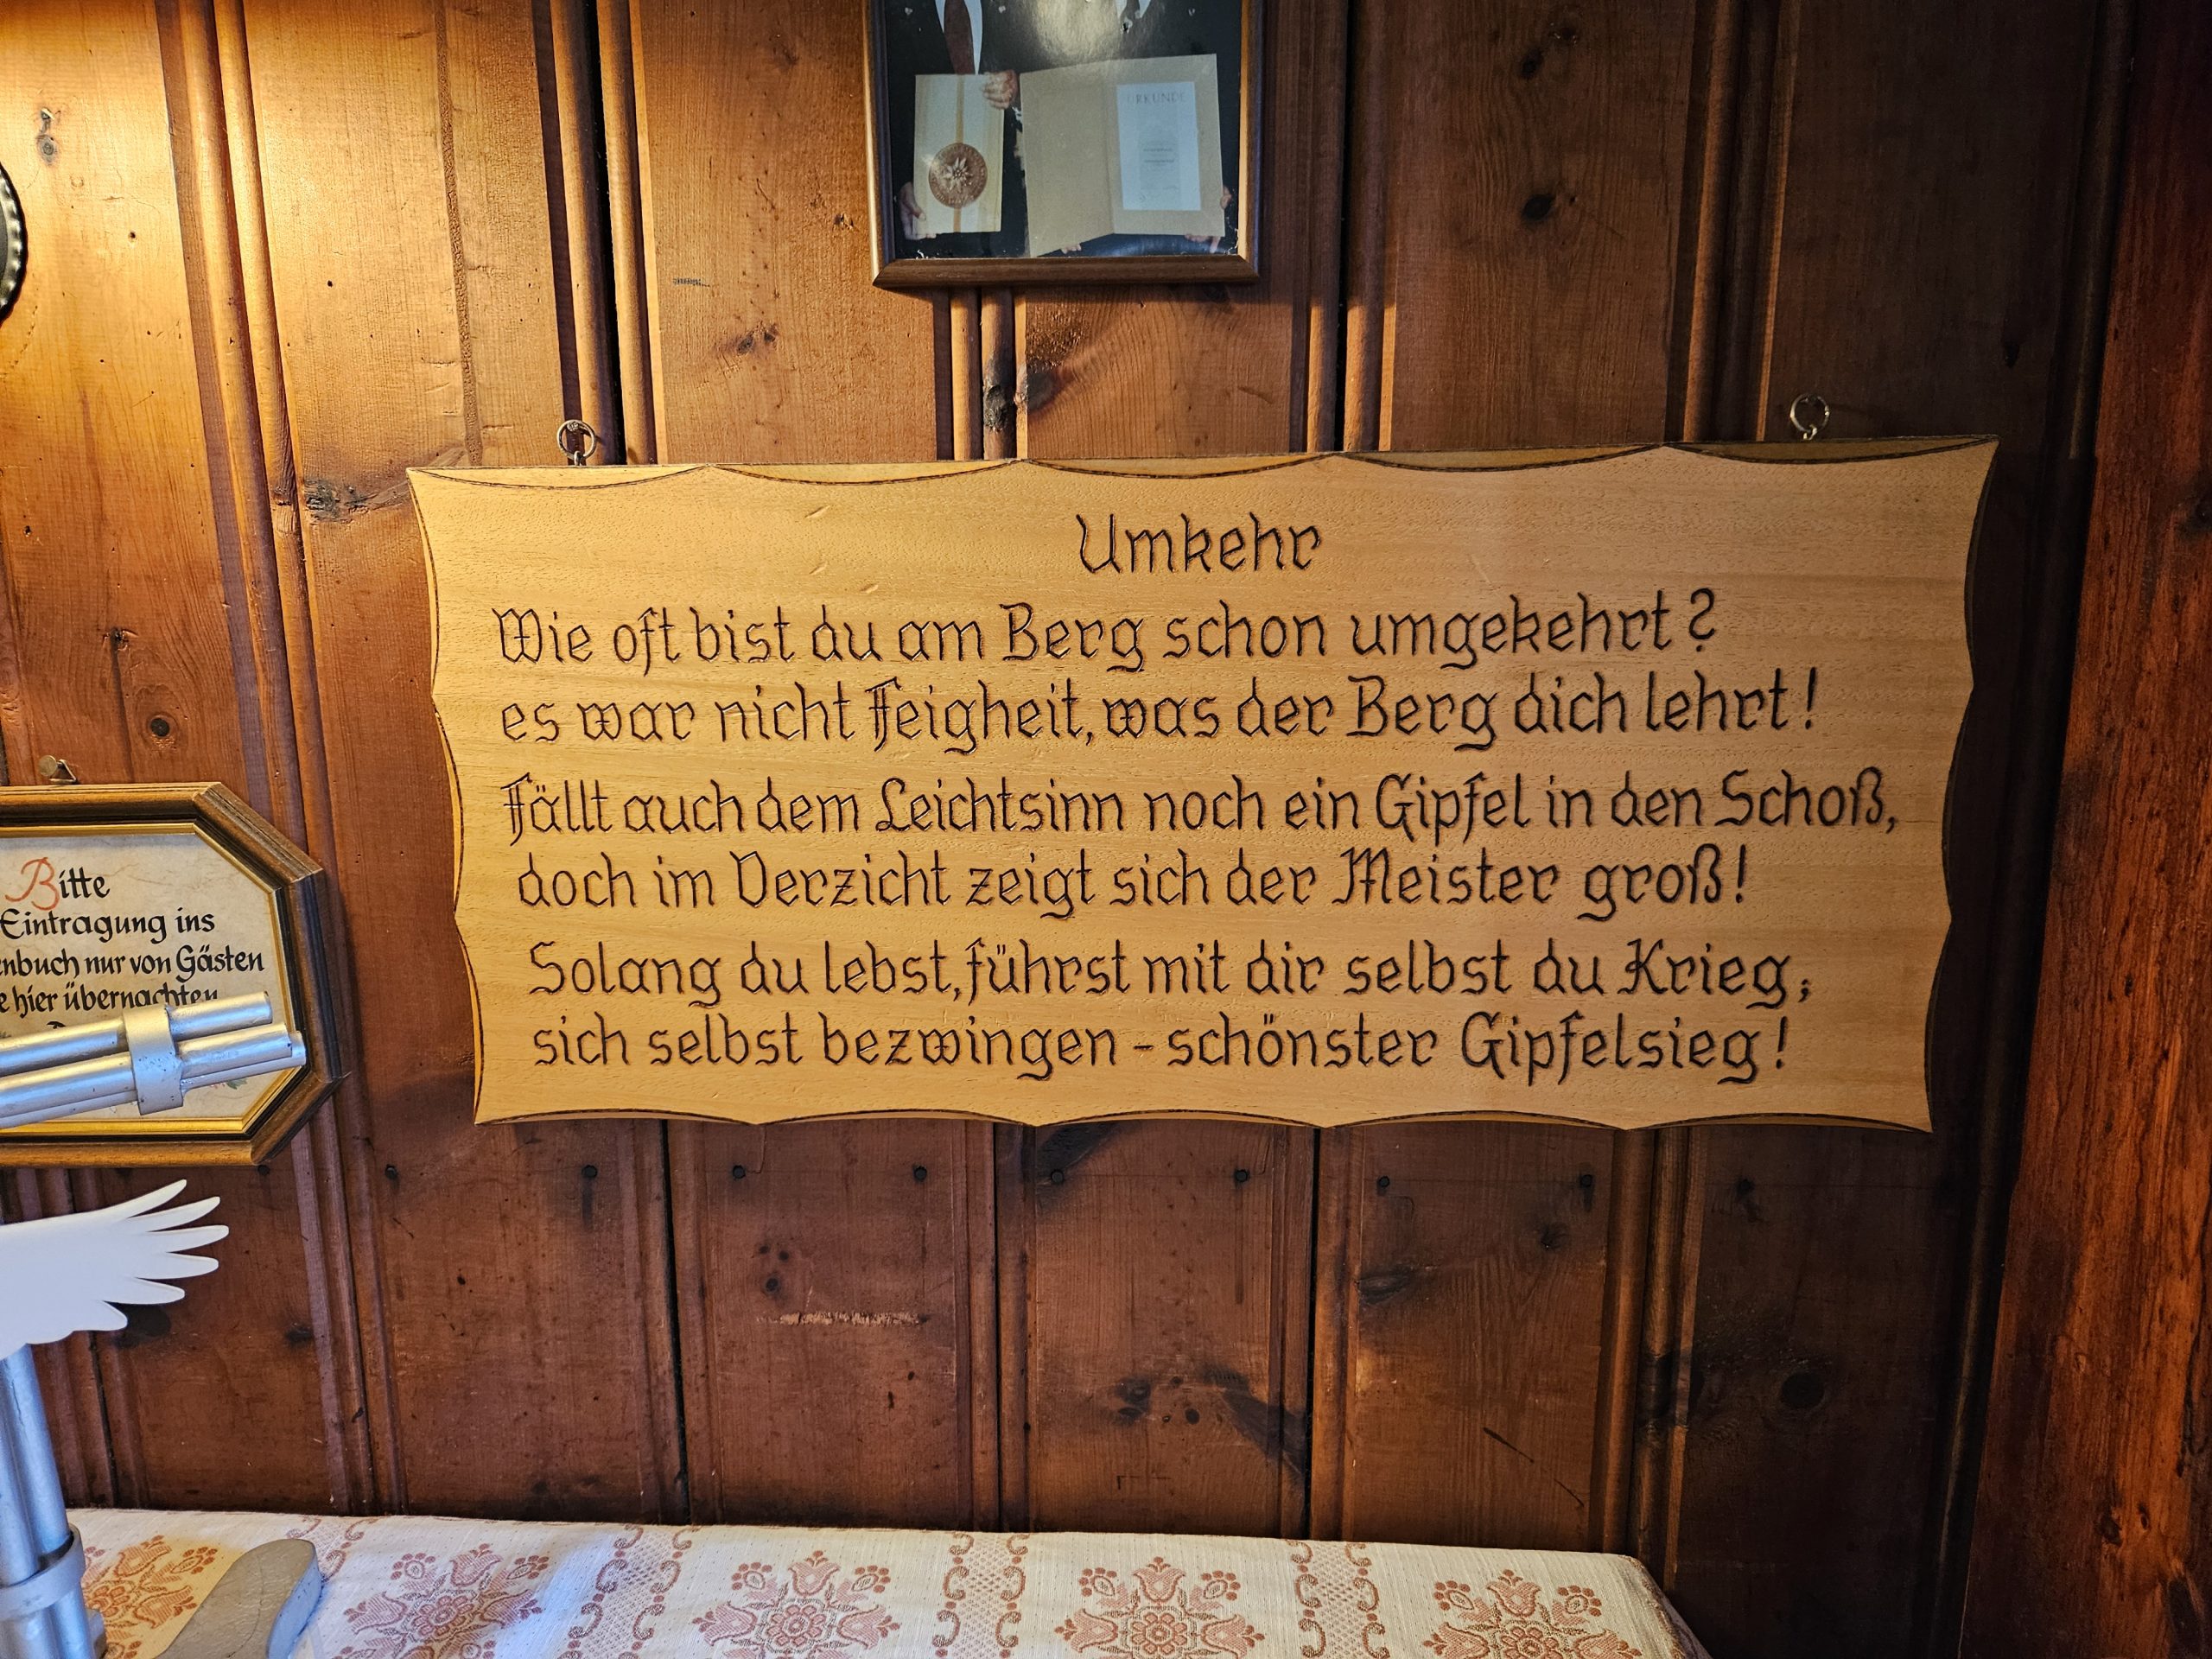 URKUNDE
Umkehr
Wie oft bist du am Berg schon umgekehrt?
es war nicht Feigheit, was der Berg dich lehrt!
Fällt auch dem Leichtsinn noch ein Gipfel in den Schoß,
doch im Verzicht zeigt sich der Meister groß!
Solang du lebst, führst mit dir selbst du Krieg;
sich selbst bezwingen - schönster Gipfelsieg!
Bitte
Eintragung ins
enbuch nur von Gästen
e hier übernachten